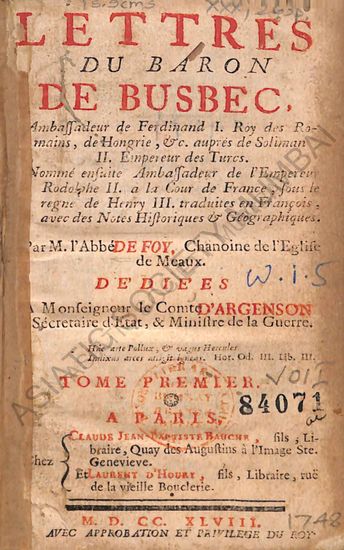 LETTRES
DU BARON
DE BUSBEC,
Ambassadeur de Ferdinand I. Roy des Ro-
mains, de Hongrie, &c. auprès de Soliman
II. Empereur des Turcs.
Nommé ensuite Ambassadeur de l'Empereur
Rodolphe II. a la Cour de France, sous le
regne de Henry III. traduites en François,
avec des Notes Historiques & Géographiques.
Par M. l'Abbé DE FOY, Chanoine de l'Eglise
de Meaux.
DÉDIÉES
W.I.5
A Monseigneur le Comte D'ARGENSON
Sécretaire d'Etat, & Ministre de la Guerre.
Hac arte Pollux, & vagus Hercules
Innixus arces attigit igneas. Hor. Od. III. Lib. III.
TOME PREMIER.
84071
A PARIS,
Chez
CLAUDE JEAN-BAPTISTE BAUCHE, fils, Li-
braire, Quay des Augustins à l'Image Ste.
Genevieve.
Et LAURENT D'HOURY, fils, Libraire, ruë
de la vieille Bouclerie.
M. D. CC. XLVIII.
1748
AVEC APPROBATION ET PRIVILEGE DU ROY
ASIATIC SOCIETY MUMBAI